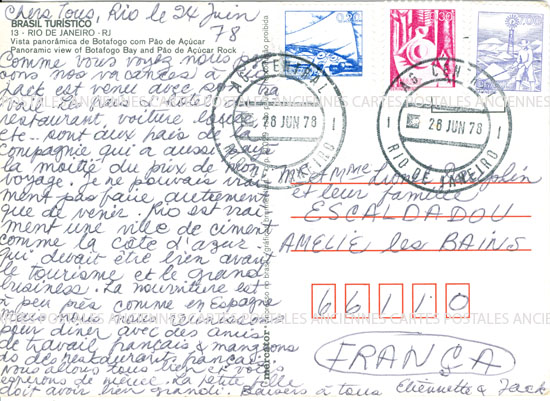 Chers Tous, Rio le 24 Juin
78
BRASIL TURÍSTICO
13 - RIO DE JANEIRO - RJ
Vista panorâmica de Botafogo com Pão de Açúcar
Panoramic view of Botafogo Bay and Pão de Açúcar Rock
Comme vous voyez nous
sons nos vacances à
Jack est venu avec son tra
vail. Les frais d'hôtel
restaurant, voiture louée
etc.. sont aux frais de la
compagnie qui a aussi payé
la moitié du prix de mon
voyage. Je ne pouvais vrai
ment pas faire autrement
que de venir. Rio est vrai
ment une ville de ciment
comme la côte d'azur
qui devait être bien avant
le tourisme et le grand
business. La nourriture est
à peu près comme en Espagne
mais nous nous réunissons
pour diner avec des amis
de travail français & mangeons
ds des restaurants français.
Nous allons tous bien et vous
espérons de même. La petite fille
doit avoir bien grandi. Baisers à tous Etiennette & Jack
0,20
1,30
AG. CENTRAL
26 JUN 78
RIO DE JANEIRO
AG. CENTRAL
26 JUN 78
RIO DE JANEIRO
M et Mme Lionel
et leur famille
ESCALDADOU
AMELIE les BAINS
66110
FRANÇA
mercator
CARTES POSTALES ANCIENNES CARTES POSTALES ANCIENNES